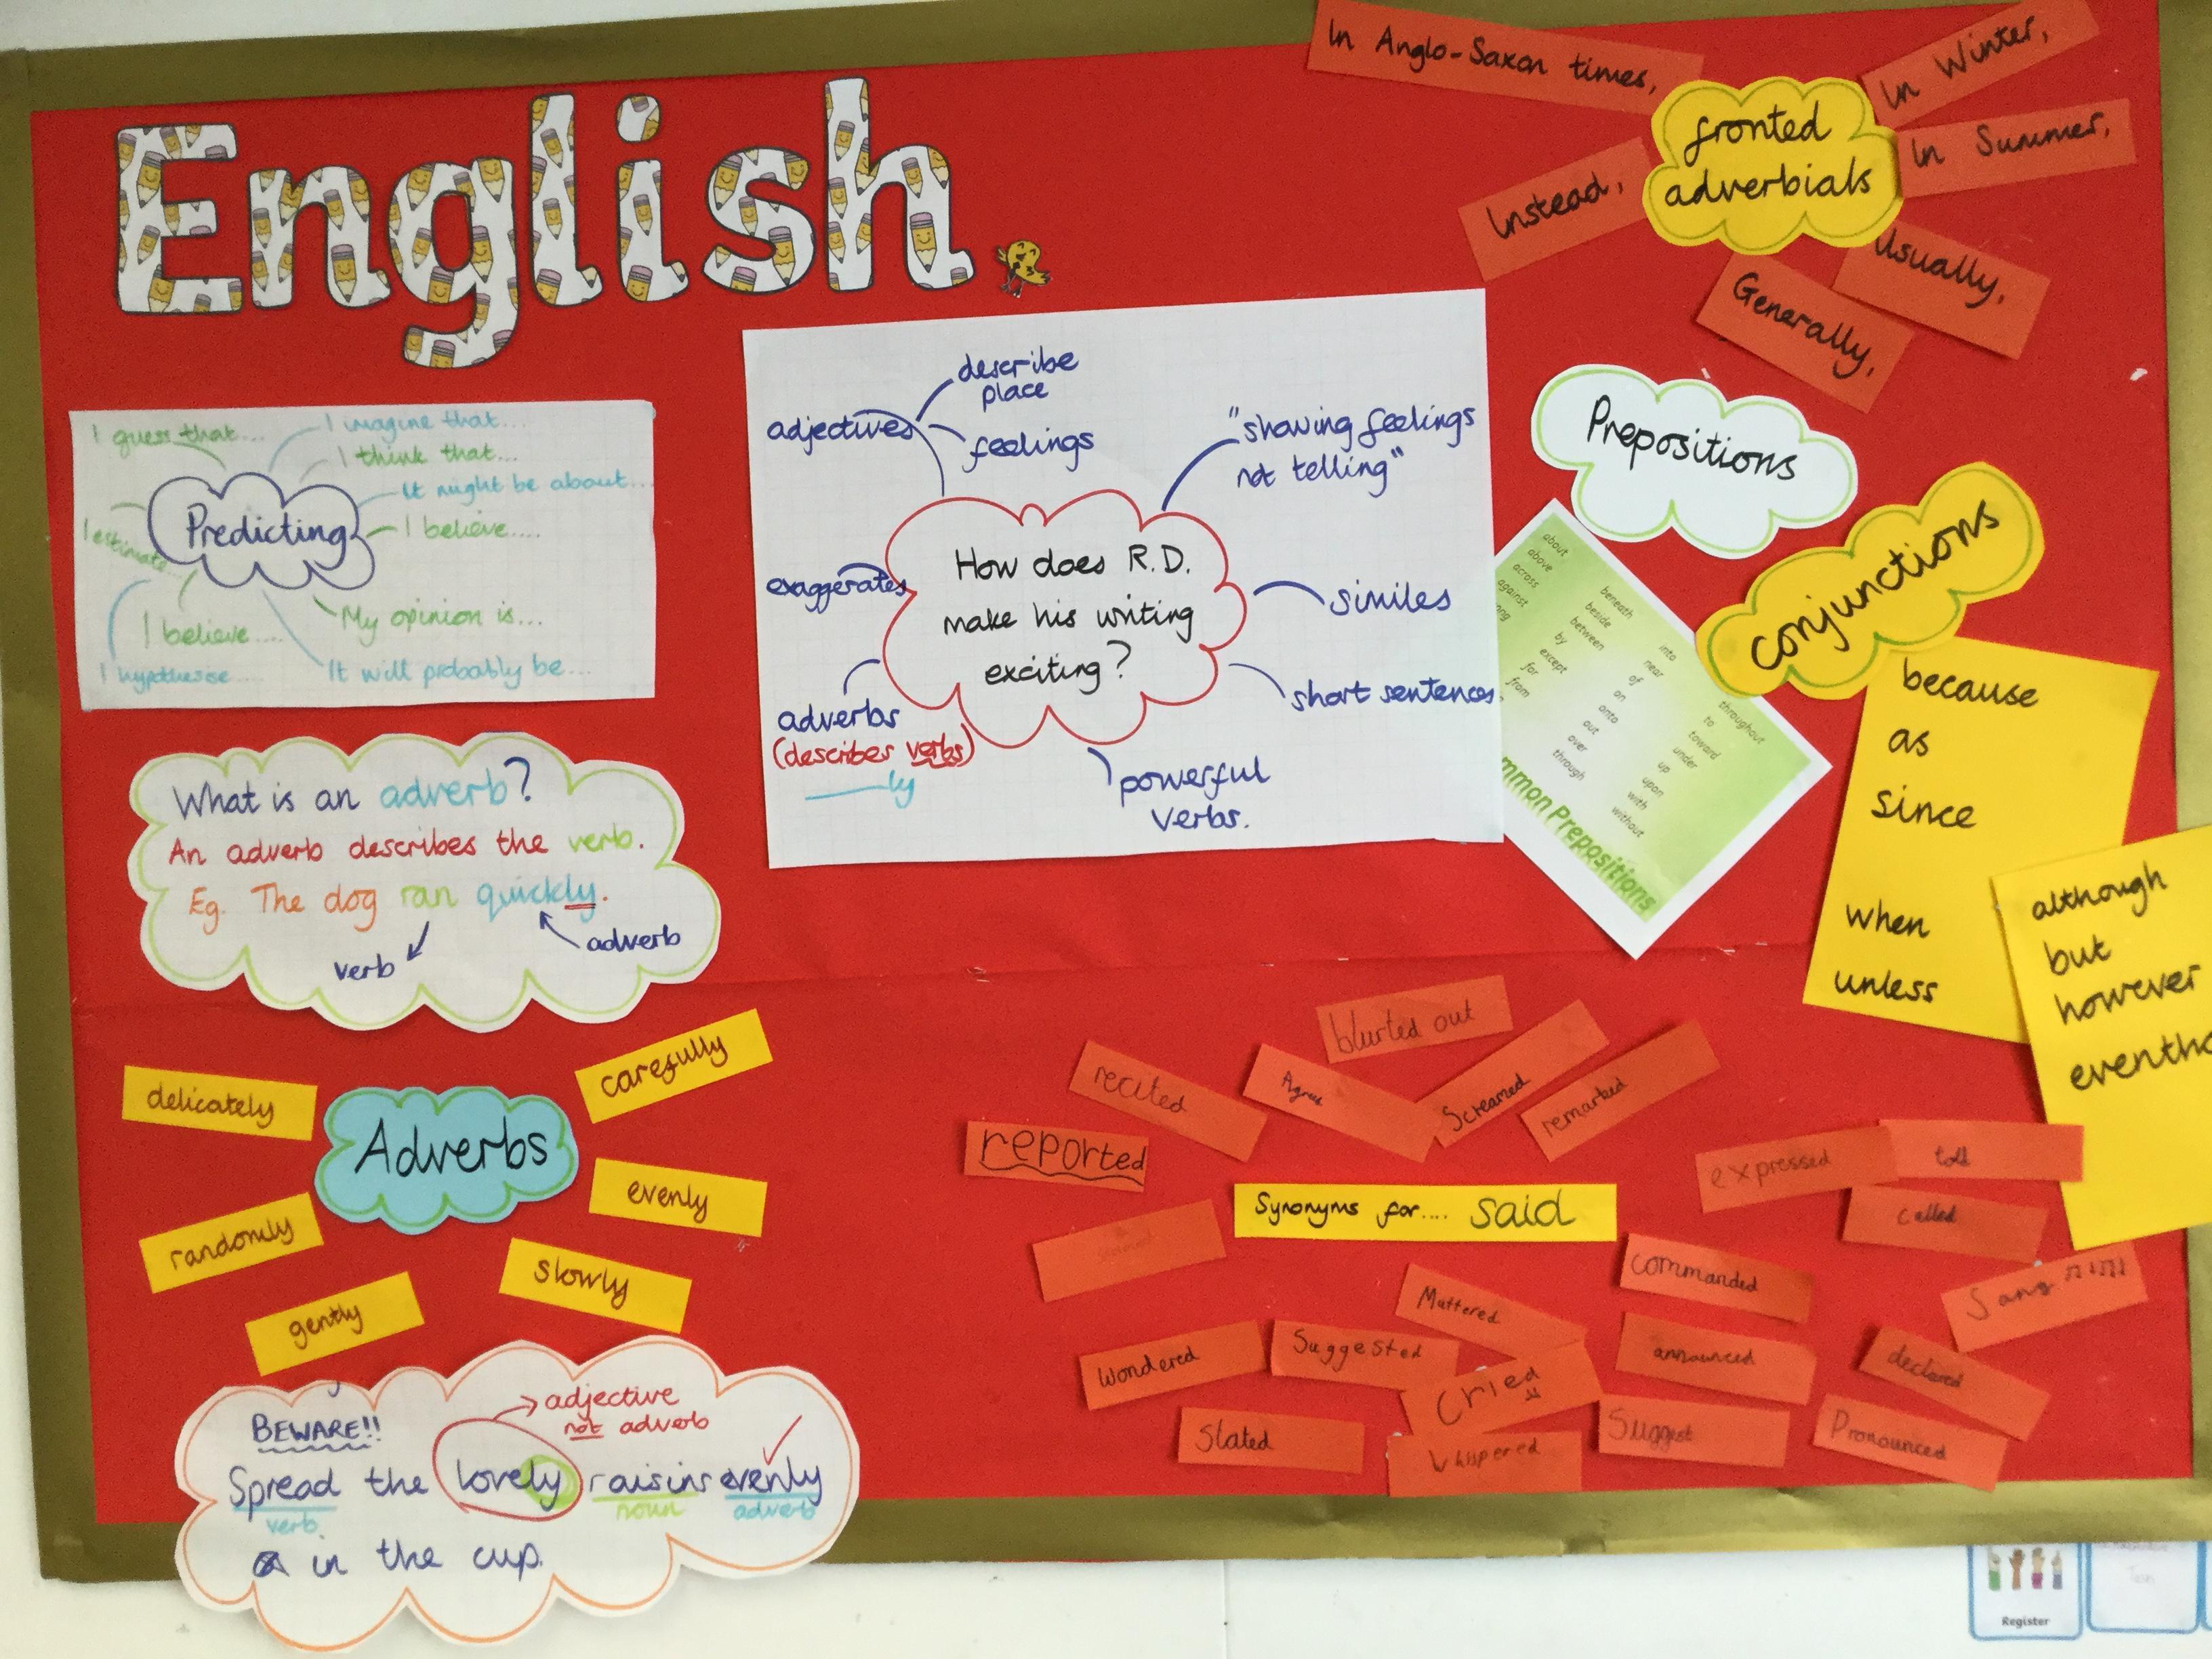 English
In Anglo-Saxon times,
In Winter,
fronted
adverbials
In Summer,
Instead,
Usually,
Generally,
I guess that...
I imagine that...
I think that...
It might be about...
Predicting
I believe....
I estimate...
I believe....
My opinion is...
I hypothesise.....
It will probably be...
adjectives
describe
place
feelings
"showing feelings
not telling"
How does R.D.
make his writing
exciting?
exaggerates
similes
adverbs
(describes verbs)
ly
short sentences
powerful
verbs.
Prepositions
about
above
across
against
beneath
beside
between
by
except
for
from
into
near
of
on
onto
out
over
through
throughout
to
toward
under
up
upon
with
without
mmon Prepositions
conjunctions
because
as
since
when
unless
although
but
however
What is an adverb?
An adverb describes the verb.
Eg. The dog ran quickly.
verb
adverb
delicately
carefully
Adverbs
evenly
randomly
slowly
gently
BEWARE!!
adjective
not adverb
Spread the lovely raisins evenly
verb noun adverb
in the cup.
blurted out
recited
Screamed
remarked
reported
expressed
told
Synonyms for.... said
called
commanded
Sang
Muttered
Wondered
Suggested
announced
declared
Cried
Stated
Whispered
Suggest
Pronounced
Register